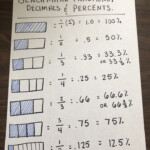 BENCHMARK FRACTIONS,
DECIMALS & PERCENTS.
= 1/1 (2/2) = 1.0 = 100%
= 1/2 = .5 = 50%
= 1/3 = .33 = 33.3%
or 33⅓%
= 1/4 = .25 = 25%
= 2/3 = .66 = 66.6%
or 66⅔%
= 3/4 = .75 = 75%
= 1/8 = .125 = 12.5%